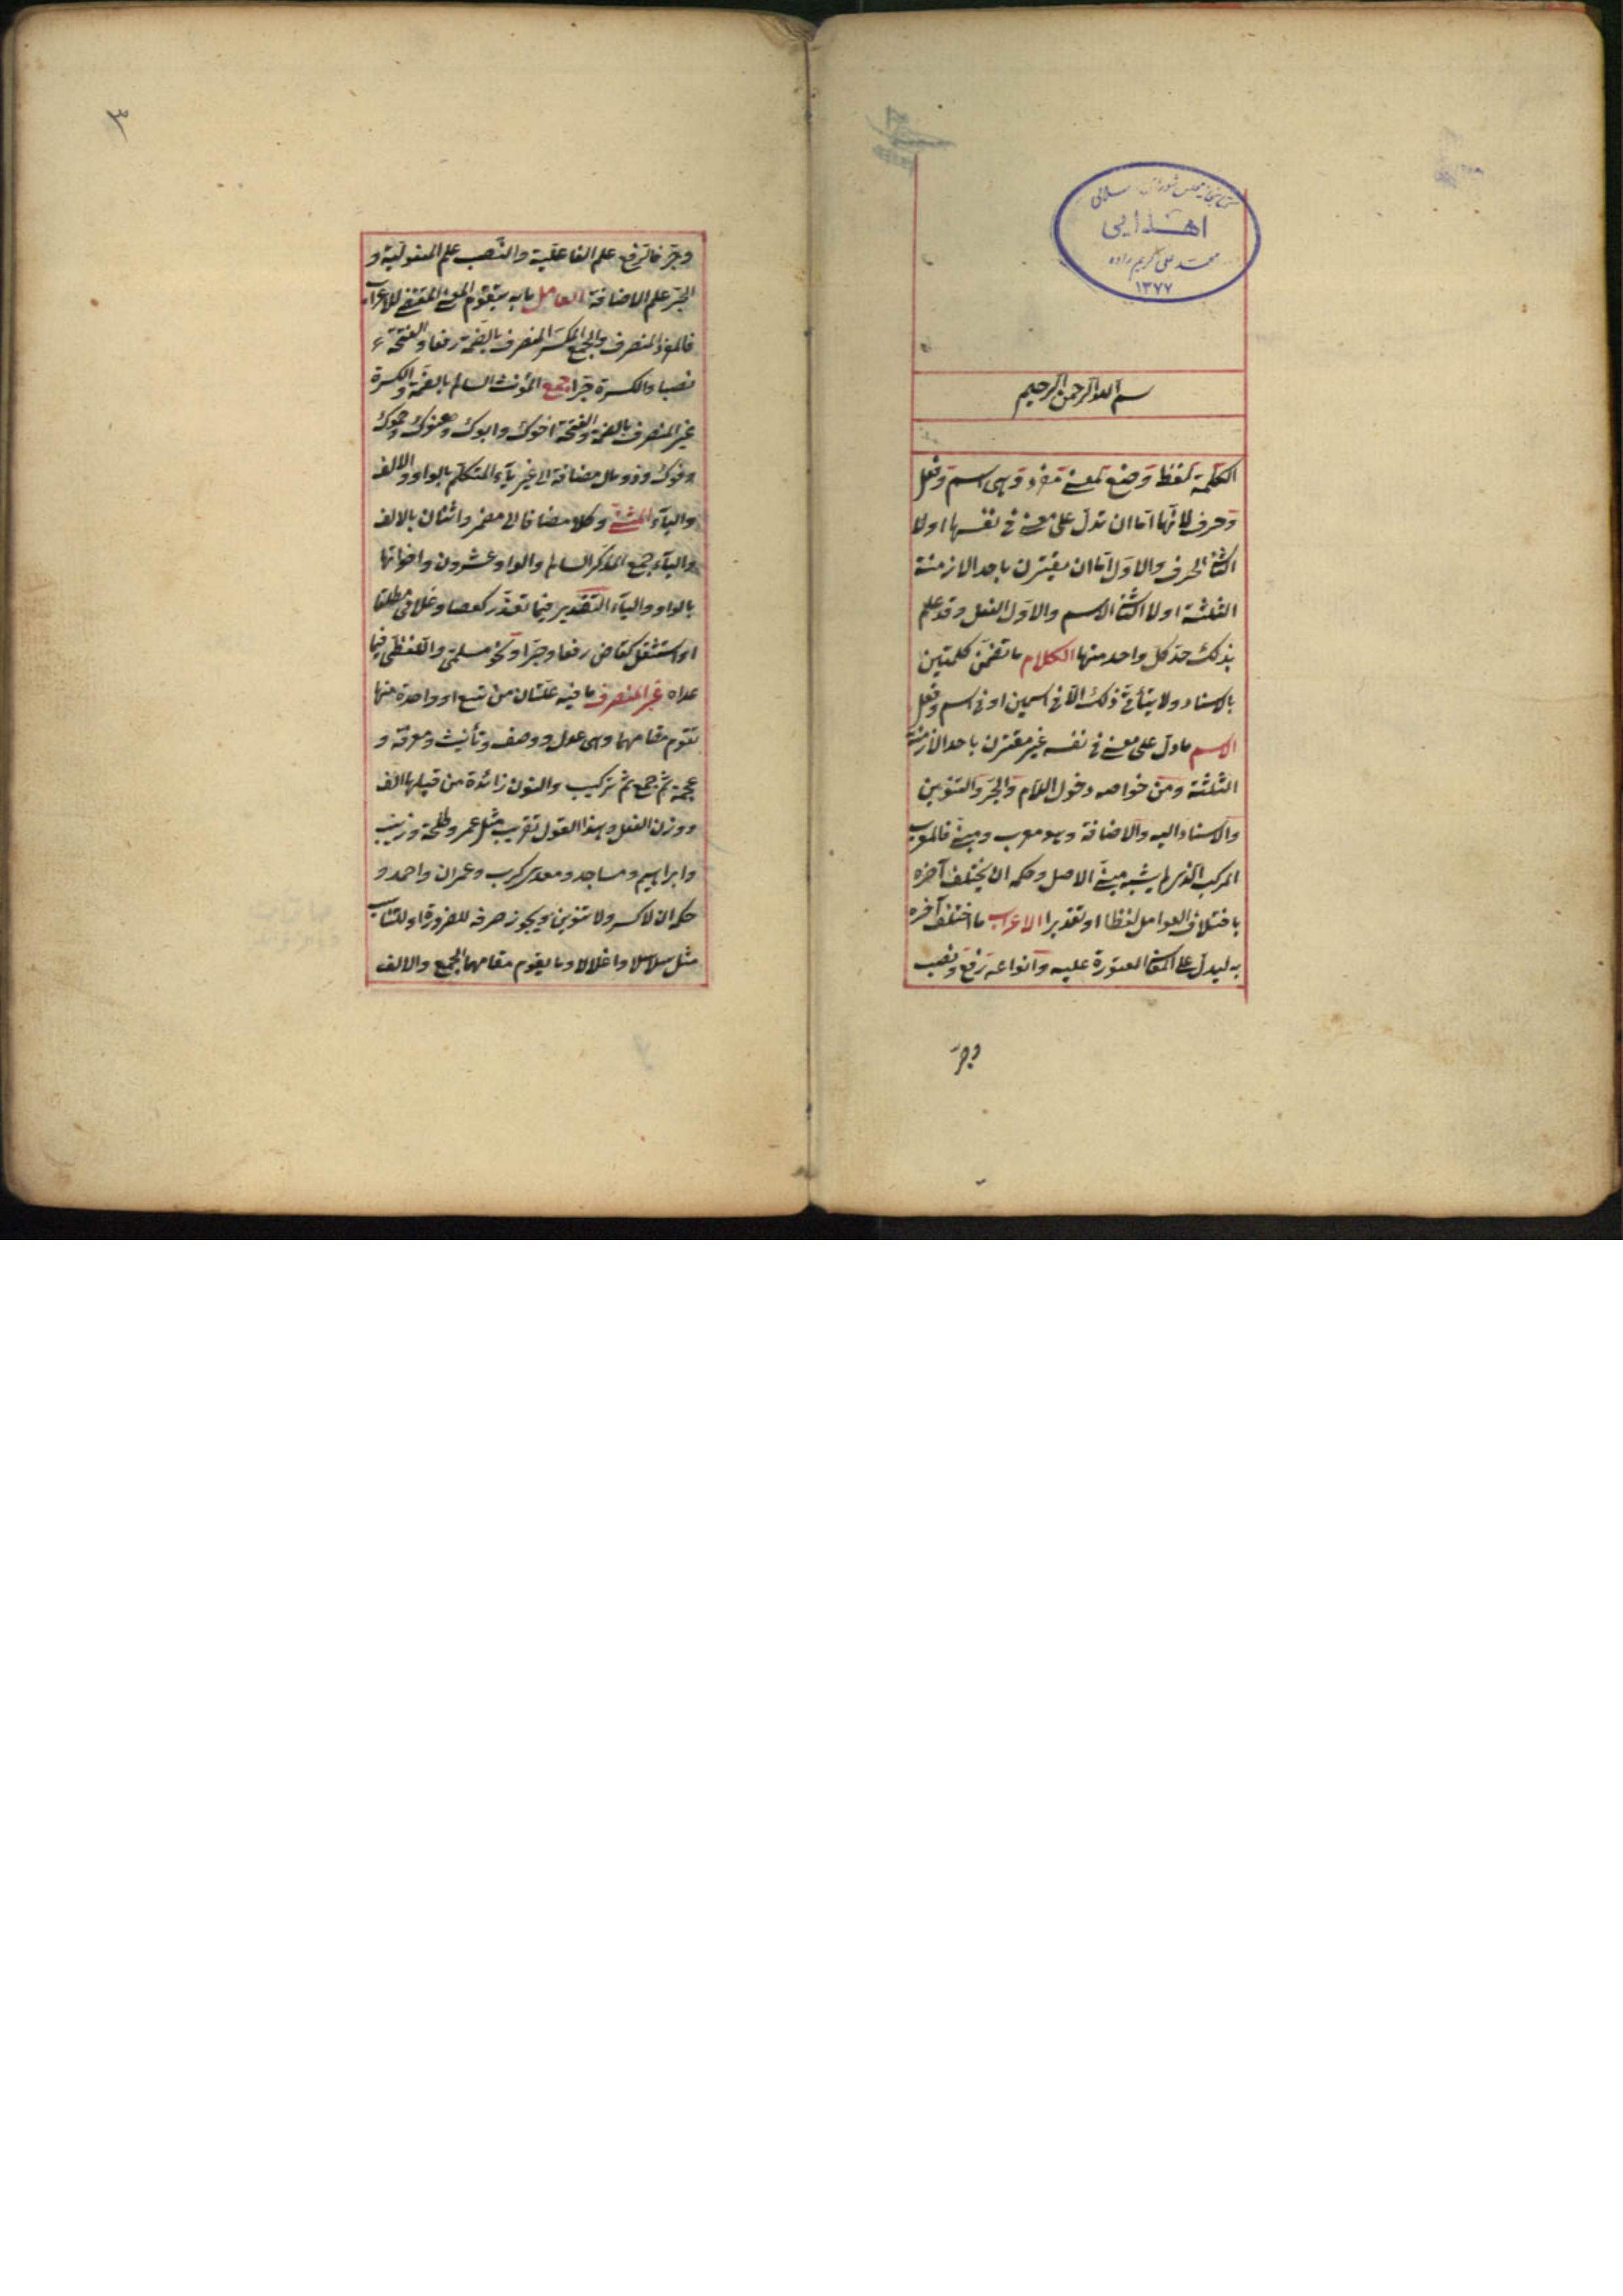 كتابخانه مجلس شورای اسلامی
اهدایی
محمد علی کریم زاده
۱۳۷۷
بسم الله الرحمن الرحيم
الكلمة لفظ وضع لمعنى مفرد وهى اسم وفعل
وحرف لانها اما ان تدل على معنى فى نفسها اولا
الثانى الحرف والاول اما ان يقترن باحد الازمنة
الثلثة اولا الثانى الاسم والاول الفعل وقد علم
بذلك حد كل واحد منها الكلام ما تضمن كلمتين
بالاسناد ولا يتأتى ذلك الا فى اسمين او فى اسم وفعل
الاسم ما دل على معنى فى نفسه غير مقترن باحد الازمنة
الثلثة ومن خواصه دخول اللام والجر والتنوين
والاسناد اليه والاضافة وهو معرب ومبنى فالمعرب
المركب الذى لم يشبه مبنى الاصل وحكمه ان يختلف آخره
باختلاف العوامل لفظا او تقديرا الاعراب ما اختلف آخره
به ليدل على المعانى المعتورة عليه وانواعه رفع ونصب
وجر
۳
وجر فالرفع علم الفاعلية والنصب علم المفعولية و
الجر علم الاضافة العامل ما به يتقوم المعنى المقتضى للاعراب
فالمفرد المنصرف والجمع المكسر المنصرف بالضمة رفعا والفتحة
نصبا والكسرة جرا جمع المؤنث السالم بالضمة والكسرة
غير المنصرف بالضمة والفتحة اخوك وابوك وهنوك وحموك
وفوك وذو مال مضافة الى غير ياء المتكلم بالواو والالف
والياء المثنى وكلا مضافا الى مضمر واثنان بالالف
والياء جمع المذكر السالم والواو عشرون واخواتها
بالواو والياء التقدير فيما تعذر كعصا وغلامى مطلقا
او استثقل كقاض رفعا وجرا ونحو مسلمى واللفظى فيما
عداه غير المنصرف ما فيه علتان من تسع او واحدة منها
تقوم مقامهما وهى عدل ووصف وتأنيث ومعرفة و
عجمة ثم جمع ثم تركيب والنون زائدة من قبلها الف
ووزن الفعل وهذا القول تقريب مثل عمر وطلحة وزينب
وابراهيم ومساجد ومعدى كرب وعمران واحمد و
حكمه ان لا كسر ولا تنوين ويجوز صرفه للضرورة او للتناسب
مثل سلاسلا واغلالا وما يقوم مقامهما الجمع والالف